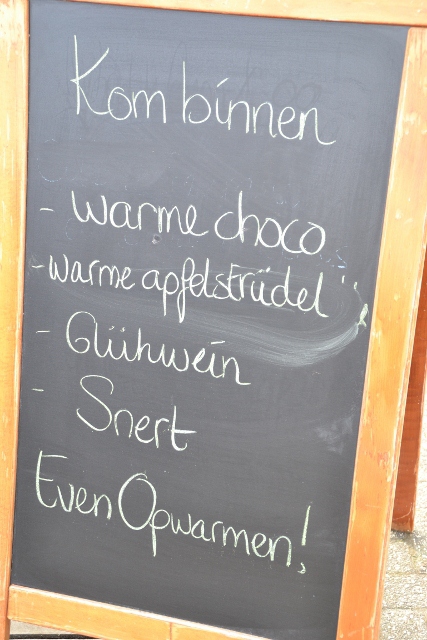 Kom binnen
- warme choco
- warme apfelstrüdel
- Glühwein
- Snert
Even Opwarmen!